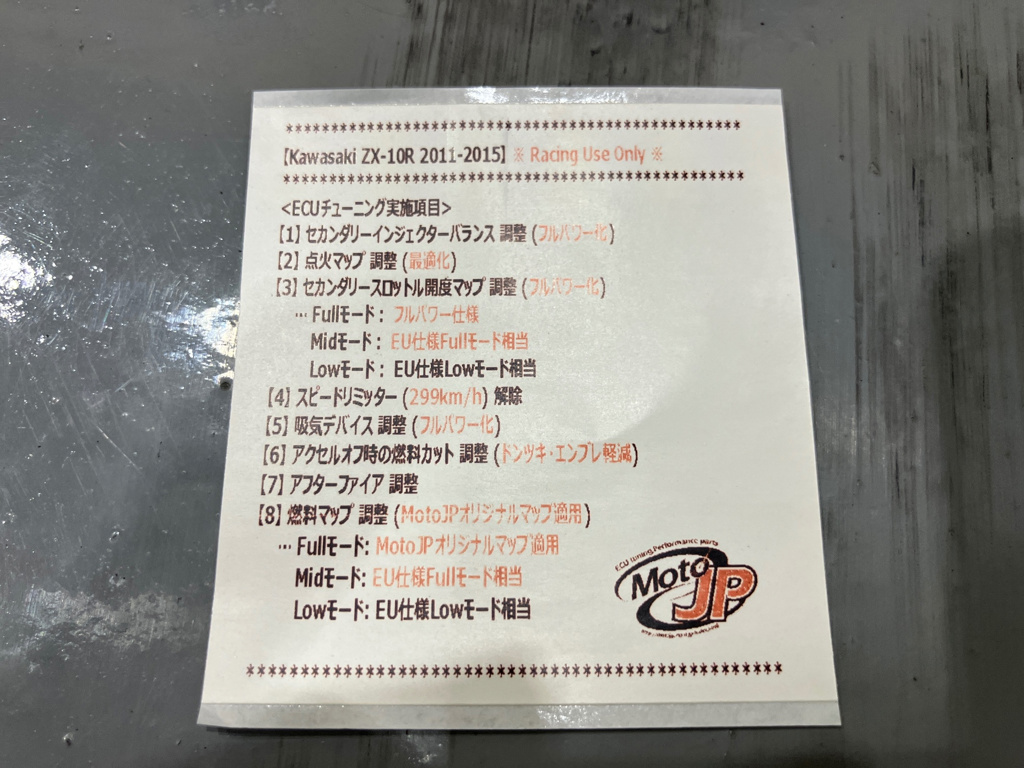 ************************************************
【Kawasaki ZX-10R 2011-2015】 ※ Racing Use Only ※
************************************************
<ECUチューニング実施項目>
【1】 セカンダリーインジェクターバランス 調整 (フルパワー化)
【2】 点火マップ 調整 (最適化)
【3】 セカンダリースロットル開度マップ 調整 (フルパワー化)
… Fullモード : フルパワー仕様
Midモード : EU仕様Fullモード相当
Lowモード : EU仕様Lowモード相当
【4】 スピードリミッター (299km/h) 解除
【5】 吸気デバイス 調整 (フルパワー化)
【6】 アクセルオフ時の燃料カット 調整 (ドンツキ・エンブレ軽減)
【7】 アフターファイア 調整
【8】 燃料マップ 調整 (MotoJPオリジナルマップ適用)
… Fullモード: MotoJPオリジナルマップ適用
Midモード: EU仕様Fullモード相当
Lowモード: EU仕様Lowモード相当
ECU tuning.Performance parts
Moto JP
************************************************